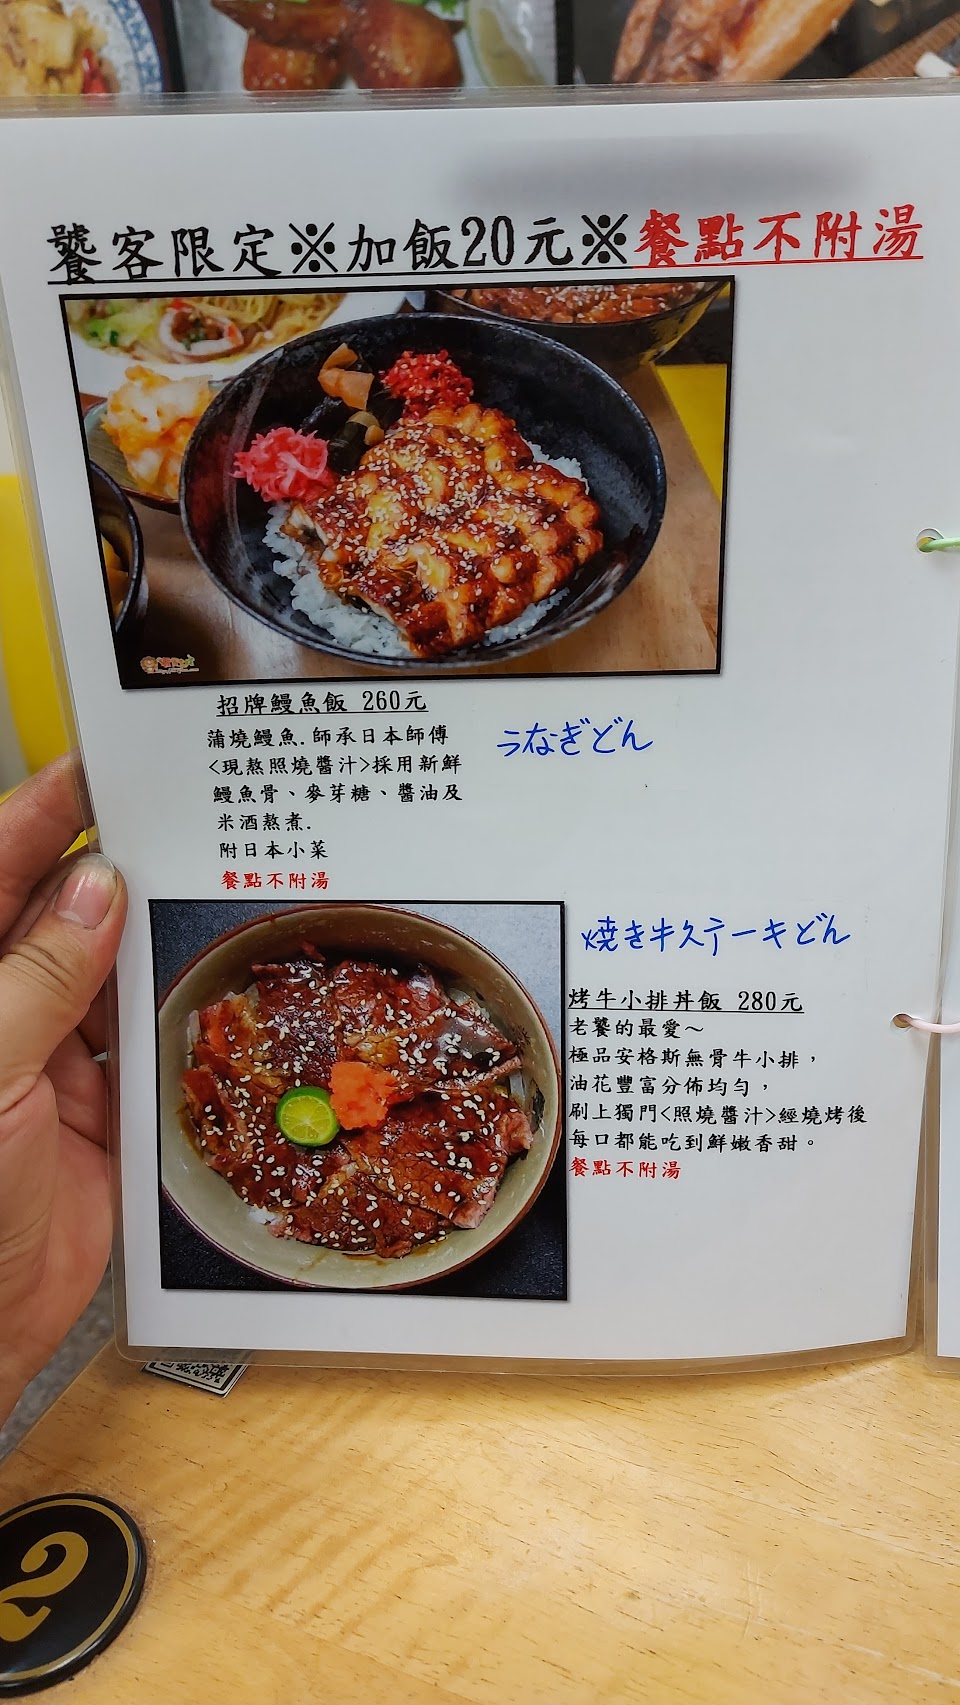 饕客限定※加飯20元※餐點不附湯
招牌鰻魚飯 260元
蒲燒鰻魚.師承日本師傅
<現熬照燒醬汁>採用新鮮
鰻魚骨、麥芽糖、醬油及
米酒熬煮.
附日本小菜
餐點不附湯
うなぎどん
焼き牛ステーキどん
烤牛小排丼飯 280元
老饕的最愛～
極品安格斯無骨牛小排，
油花豐富分佈均勻，
刷上獨門<照燒醬汁>經燒烤後
每口都能吃到鮮嫩香甜。
餐點不附湯
2